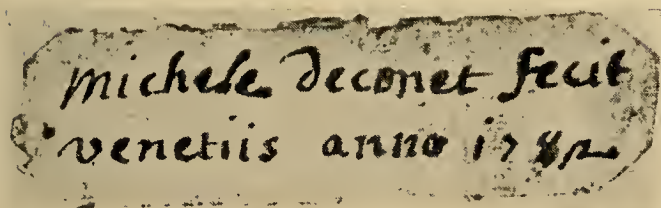 michele deconet fecit
venetiis anno 1782